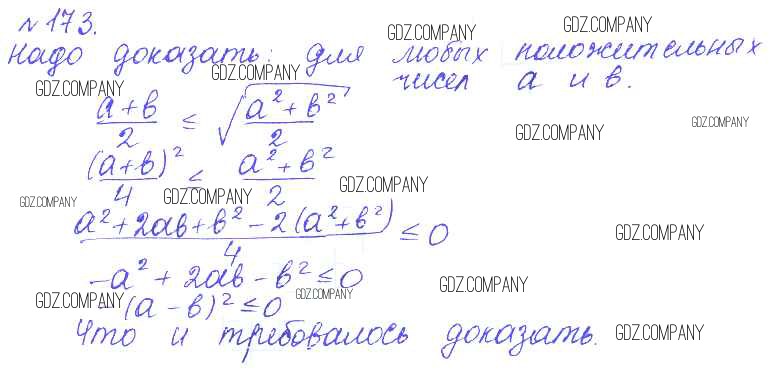 № 173. GDZ.COMPANY GDZ.COMPANY
Надо доказать: для любых положительных
GDZ.COMPANY GDZ.COMPANY чисел a и b.
(a+b)/2 ≤ √((a²+b²)/2) GDZ.COMPANY GDZ.COMPANY
(a+b)²/4 ≤ (a²+b²)/2 GDZ.COMPANY
GDZ.COMPANY GDZ.COMPANY
(a²+2ab+b²-2(a²+b²))/4 ≤ 0 GDZ.COMPANY
-a²+2ab-b² ≤ 0 GDZ.COMPANY GDZ.COMPANY
GDZ.COMPANY -(a-b)² ≤ 0
Что и требовалось доказать. GDZ.COMPANY